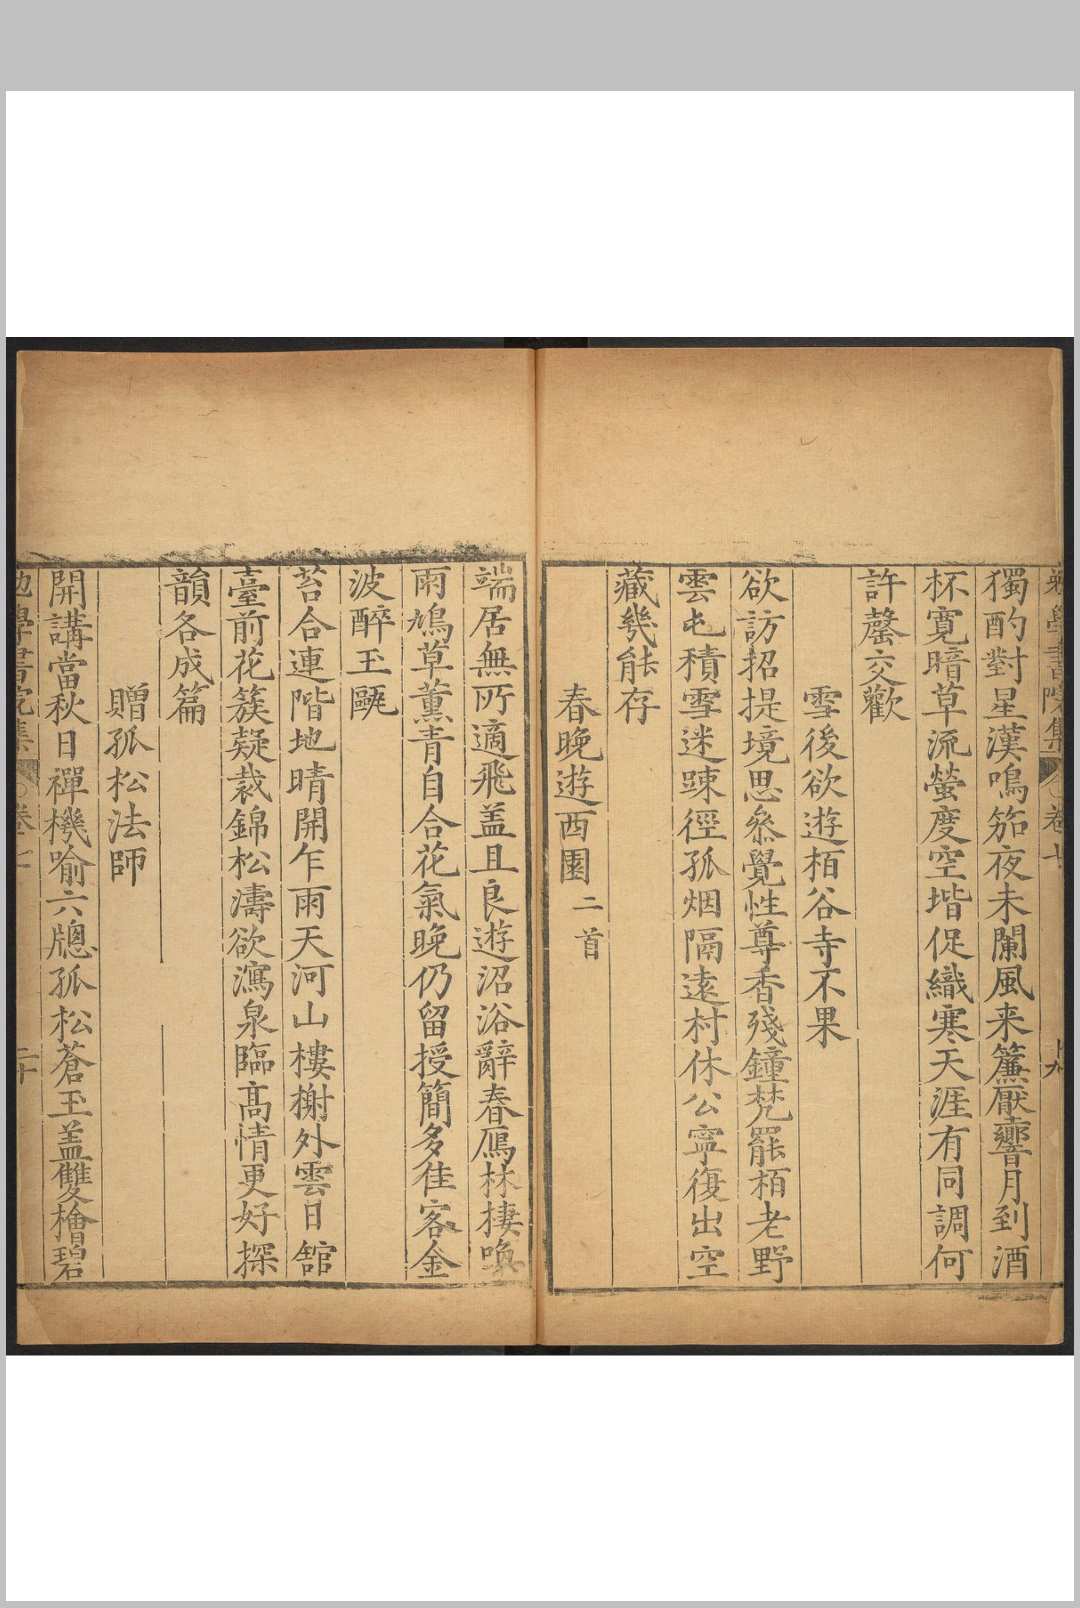 獨酌對星漢鳴笳夜未闌風来簾厭響月到酒
杯寛暗草流螢度空堦促織寒天涯有同調何
許罄交歡
雪後欲遊栢谷寺不果
欲訪招提境思叅覺性尊香殘鐘梵罷栢老野
雲屯積雪迷踈徑孤烟隔遠村休公寧復出空
藏幾能存
春晚遊西園 二首
端居無所適飛盖且良遊沼浴辭春鴈林棲喚
雨鳩草薰青自合花氣晚仍留授簡多佳客金
波醉玉甌
苔合連階地晴開乍雨天河山樓榭外雲日舘
臺前花簇疑裁錦松濤欲瀉泉臨高情更好探
韻各成篇
贈孤松法師
開講當秋日禪機喻六牕孤松蒼玉盖雙檜碧